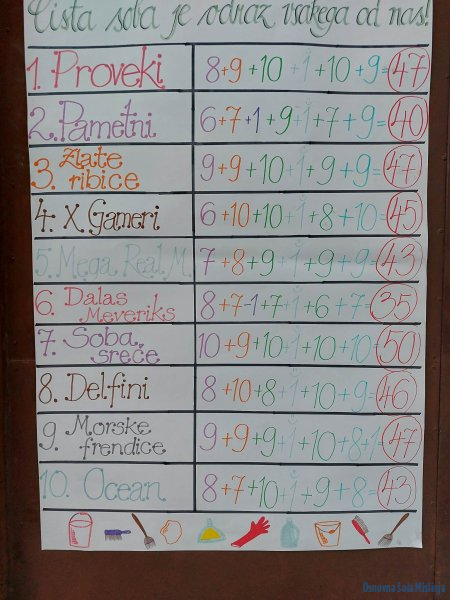 Čista soba je odraz svakega od nas!
1. Proveki 8+9+10+1+10+9=47
2. Pametni 6+7+1+9+1+7+9=40
3. Zlate
ribice 9+9+10+1+9+9=47
4. X Gameri 6+10+10+1+8+10=45
5. Mega Real M. 7+8+9+1+9+9=43
6. Dalas
Meveriks 8+7-1+7+1+6+7=35
7. Soba
sreće 10+9+10+1+10+10=50
8. Delfini 8+10+8+1+10+9=46
9. Morske
frendice 9+9+9+1+10+8+1=47
10. Ocean 8+7+10+1+9+8=43
Osnovna šola Mislinja